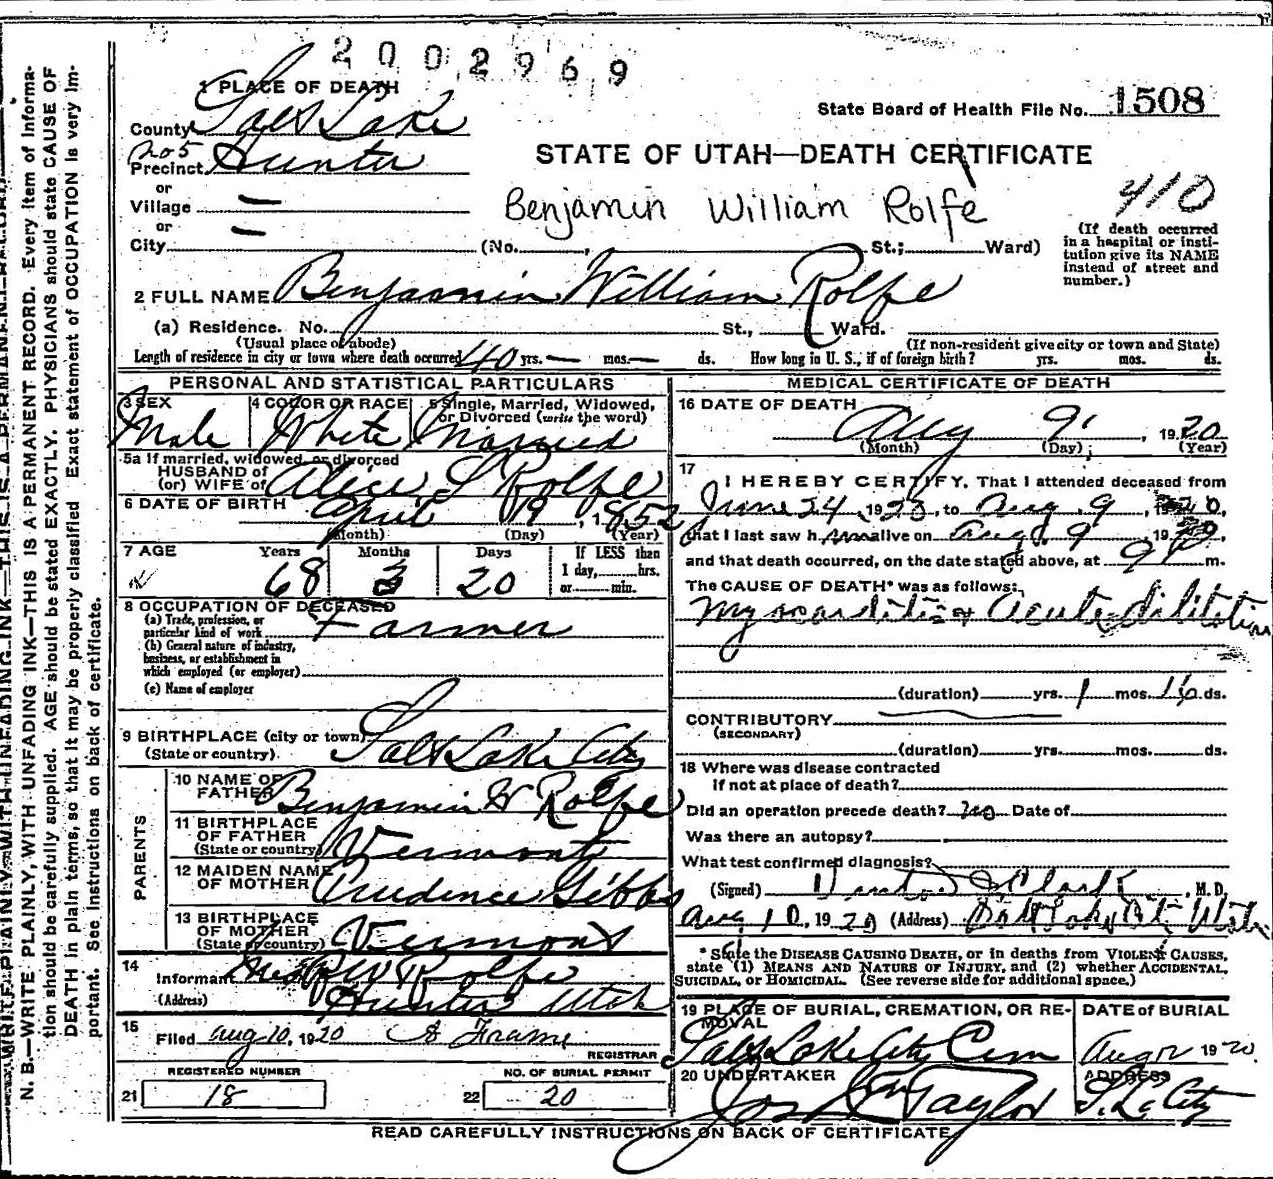 2002969
1 PLACE OF DEATH
State Board of Health File No. 1508
County Salt Lake
No 5
Precinct Hunter
STATE OF UTAH—DEATH CERTIFICATE
or
Village —
Benjamin William Rolfe
410
or —
City (No. , St.; Ward)
(If death occurred in a hospital or institution give its NAME instead of street and number.)
2 FULL NAME Benjamin William Rolfe
(a) Residence. No. St., Ward.
(Usual place of abode) (If non-resident give city or town and State)
Length of residence in city or town where death occurred 40 yrs. — mos. — ds. How long in U. S., if of foreign birth? yrs. mos. ds.
PERSONAL AND STATISTICAL PARTICULARS
3 SEX 4 COLOR OR RACE 5 Single, Married, Widowed, or Divorced (write the word)
Male White Married
5a If married, widowed, or divorced
HUSBAND of
(or) WIFE of Alice S Rolfe
6 DATE OF BIRTH April 19, 1852
(Month) (Day) (Year)
7 AGE Years Months Days If LESS than
68 3 20 1 day, hrs.
or min.
8 OCCUPATION OF DECEASED
(a) Trade, profession, or
particular kind of work Farmer
(b) General nature of industry,
business, or establishment in
which employed (or employer)
(c) Name of employer
9 BIRTHPLACE (city or town) Salt Lake City
(State or country)
PARENTS
10 NAME OF
FATHER Benjamin W Rolfe
11 BIRTHPLACE
OF FATHER
(State or country) Vermont
12 MAIDEN NAME
OF MOTHER Prudence Gibbs
13 BIRTHPLACE
OF MOTHER
(State or country) Vermont
14
Informant Rolfe
(Address) Hunter Utah
15
Filed Aug 10, 1920 Frame
REGISTRAR
REGISTERED NUMBER NO. OF BURIAL PERMIT
21 18 22 20
MEDICAL CERTIFICATE OF DEATH
16 DATE OF DEATH
Aug 9, 1920
(Month) (Day) (Year)
17
I HEREBY CERTIFY, That I attended deceased from
June 24, 1920, to Aug. 9, 1920,
that I last saw him alive on Aug. 9 1920,
and that death occurred, on the date stated above, at 9 P m.
The CAUSE OF DEATH* was as follows:
Myocarditis & Acute dilitation
(duration) yrs. 1 mos. 16 ds.
CONTRIBUTORY
(SECONDARY)
(duration) yrs. mos. ds.
18 Where was disease contracted
If not at place of death?
Did an operation precede death? no Date of
Was there an autopsy?
What test confirmed diagnosis?
(Signed) Clark, M. D.
Aug 10, 1920 (Address) Salt Lake City Utah
*State the DISEASE CAUSING DEATH, or in deaths from VIOLENT CAUSES,
state (1) MEANS AND NATURE OF INJURY, and (2) whether ACCIDENTAL,
SUICIDAL, or HOMICIDAL. (See reverse side for additional space.)
19 PLACE OF BURIAL, CREMATION, OR REMOVAL DATE of BURIAL
Salt Lake City Cem Aug 12 1920
20 UNDERTAKER ADDRESS
Jos Wm Taylor S. L. City
READ CAREFULLY INSTRUCTIONS ON BACK OF CERTIFICATE
WRITE PLAINLY WITH UNFADING INK—THIS IS A PERMANENT RECORD
N. B.—WRITE PLAINLY, WITH UNFADING INK—THIS IS A PERMANENT RECORD. Every item of informa-
tion should be carefully supplied. AGE should be stated EXACTLY. PHYSICIANS should state CAUSE OF
DEATH in plain terms, so that it may be properly classified. Exact statement of OCCUPATION is very im-
portant. See instructions on back of certificate.